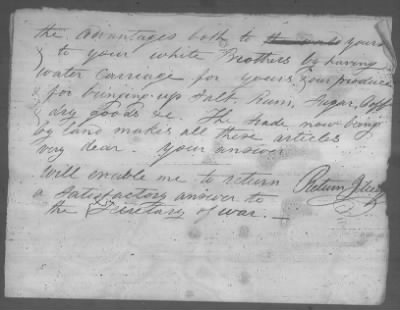 the advantages both to yours
& to your white Brothers by having
water Carriage for yours & our produce
& for bringing up Salt, Rum, Sugar, Coff
& dry goods &c. The trade now being
by land makes all these articles
very dear - your answer
will enable me to return
a Satisfactory answer to
the Secretary of war. —
Return J. Meigs